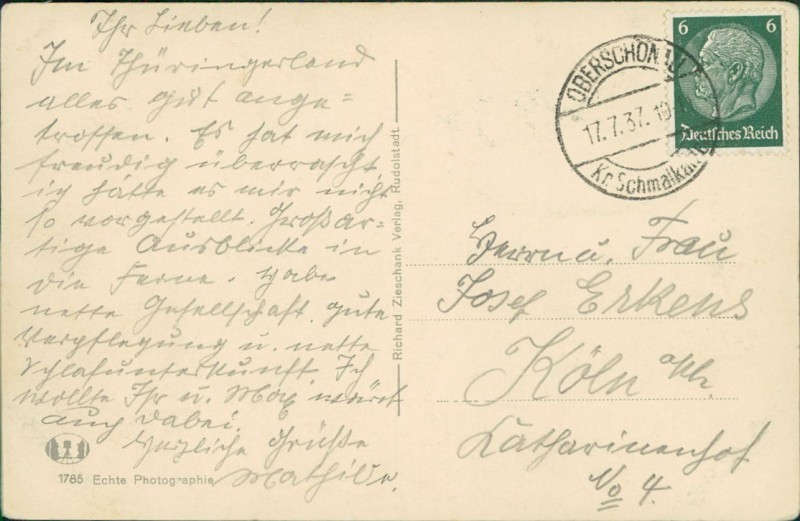 Ihr Lieben!
Im Thüringerland
alles gut ange=
troffen. Es hat mich
freudig überrascht
ich hätte es mir nicht
so vorgestellt. Großar=
tige Ausblicke in
die Ferne. Habe
nette Gesellschaft. gute
Verpflegung u. nette
Schlafunterkunft. Ich
wollte Ihr u. Max wäret
auch dabei.
Herzliche Grüße
Mathilde.
1785 Echte Photographie
Richard Zieschank Verlag, Rudolstadt
6 6
Deutsches Reich
OBERSCHÖNAU
17.7.37.
Kr. Schmalkalden
Herrn u. Frau
Josef Erkens
Köln a/Rh.
Katharinenhof
No 4.